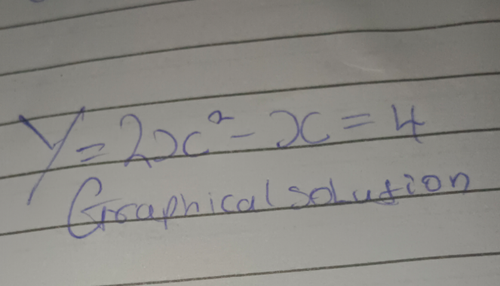 Y = 2x² - x = 4
Graphical solution